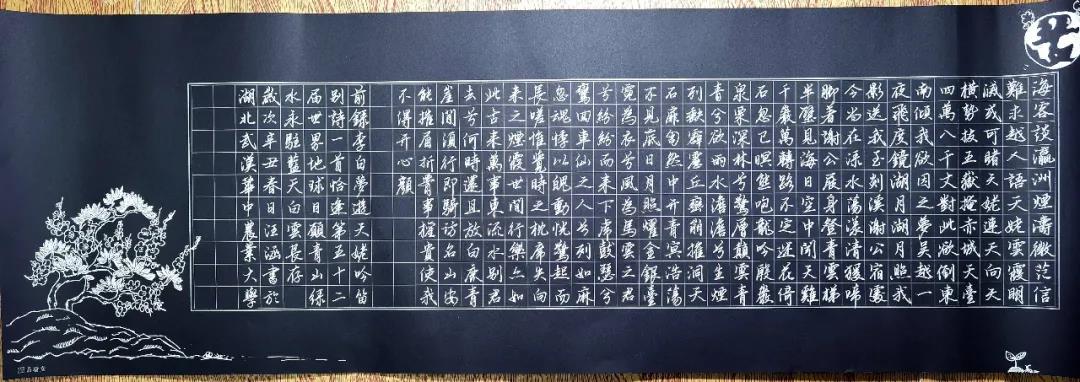 海客談瀛洲煙濤微茫信
難求越人語天姥雲霓明
滅或可睹天姥連天向天
橫勢拔五嶽掩赤城天臺
四萬八千丈對此欲倒東
南傾我欲因之夢吳越一
夜飛度鏡湖月湖月照我
影送我至剡溪謝公宿處
今尚在淥水蕩漾清猿啼
腳著謝公屐身登青雲梯
半壁見海日空中聞天雞
千巖萬轉路不定迷花倚
石忽已暝熊咆龍吟殷巖
泉慄深林兮驚層巔雲青
青兮欲雨水澹澹兮生煙
列缺霹靂丘巒崩摧洞天
石扉訇然中開青冥浩蕩
不見底日月照耀金銀臺
霓為衣兮風為馬雲之君
兮紛紛而來下虎鼓瑟兮
鸞回車仙之人兮列如麻
忽魂悸以魄動恍驚起而
長嗟惟覺時之枕席失向
來之煙霞世間行樂亦如
此古來萬事東流水別君
去兮何時還且放白鹿青
崖間須行即騎訪名山安
能摧眉折腰事權貴使我
不得開心顏
前錄李白夢遊天姥吟留
別詩一首恰逢第五十二
届世界地球日願青山綠
水永駐藍天白雲長存
歲次辛丑春日汪涵書於
湖北武漢華中農業大學